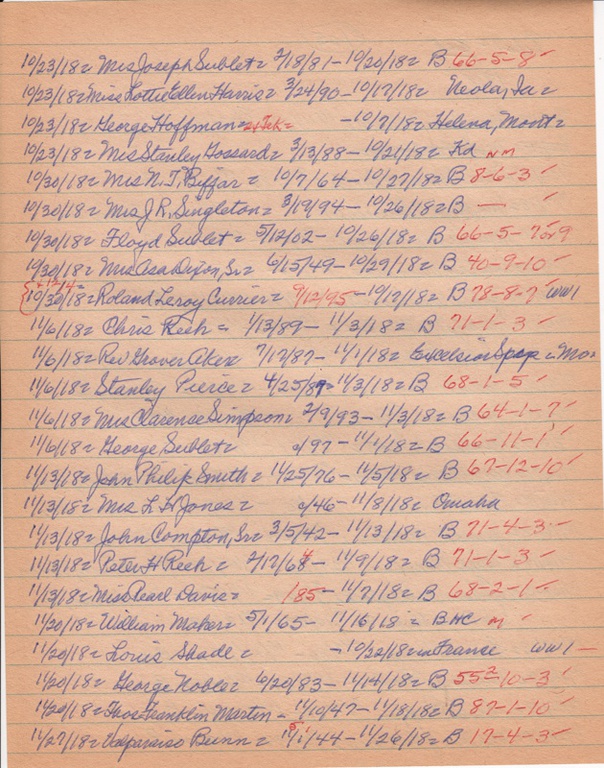 10/23/18 = Mrs Joseph Sublet = 2/18/81 - 10/20/18 = B 66-5-8 ✓
10/23/18 = Miss Lottie Ellen Harris = 3/24/90 - 10/17/18 = Neola, Ia =
10/23/18 = George Hoffman = - 10/7/18 = Helena, Mont =
10/23/18 = Mrs Stanley Gossard = 3/13/88 - 10/21/18 = Ka NM
10/30/18 = Mrs N. T. Biffar = 10/7/64 - 10/27/18 = B 8-6-3 ✓
10/30/18 = Mrs J R, Singleton = 3/19/94 - 10/26/18 = B — ✓
10/30/18 = Floyd Sublet = 5/12/02 - 10/26/18 = B 66-5-7 or 9
10/30/18 = Mrs Asa Dixon, Sr = 6/15/49 - 10/29/18 = B 40-9-10 ✓
{ + 12/4 =
10/30/18 = Roland Leroy Currier = 9/12/95 - 10/12/18 = B 78-8-7 ✓ WW1
11/6/18 = Chris Reeh = 1/13/89 - 11/3/18 = B 71-1-3 ✓
11/6/18 = Rev Grover Akex 7/17/87 - 11/1/18 = Excelsior Spgs = Mo=
11/6/18 = Stanley Pierce = 4/25/89 = 11/3/18 = B 68-1-5 ✓
11/6/18 = Mrs Clarense Simpson = 2/9/93 - 11/3/18 = B 64-1-7 ✓
11/6/18 = George Sublet = c/97 - 11/1/18 = B 66-11-1 ✓
11/13/18 = John Philip Smith = 11/25/76 - 11/5/18 = B 67-12-10 ✓
11/13/18 = Mrs L H Jones = c/46 - 11/8/18 = Omaha
11/13/18 = John Compton, Sr = 3/5/42 - 11/13/18 = B 71-4-3 -
11/13/18 = Peter H Reeh = 2/17/64 - 11/9/18 = B 71-1-3 ✓
11/13/18 = Miss Pearl Davis = /85 - 11/7/18 = B 68-2-1 ✓
11/20/18 = William Maker = 5/1/65 - 11/16/18 = BHC M ✓
11/20/18 = Louis Skade = - 10/22/18 = in France WW1 —
11/20/18 = George Noble = 6/20/83 - 11/14/18 = B 55²-10-3 ✓
11/20/18 = Thos Franklin Martin - 11/10/47 - 11/18/18 = B 87-1-10 ✓
11/27/18 = Valparaiso Bunn = /44 - 11/26/18 = B 17-4-3 ✓